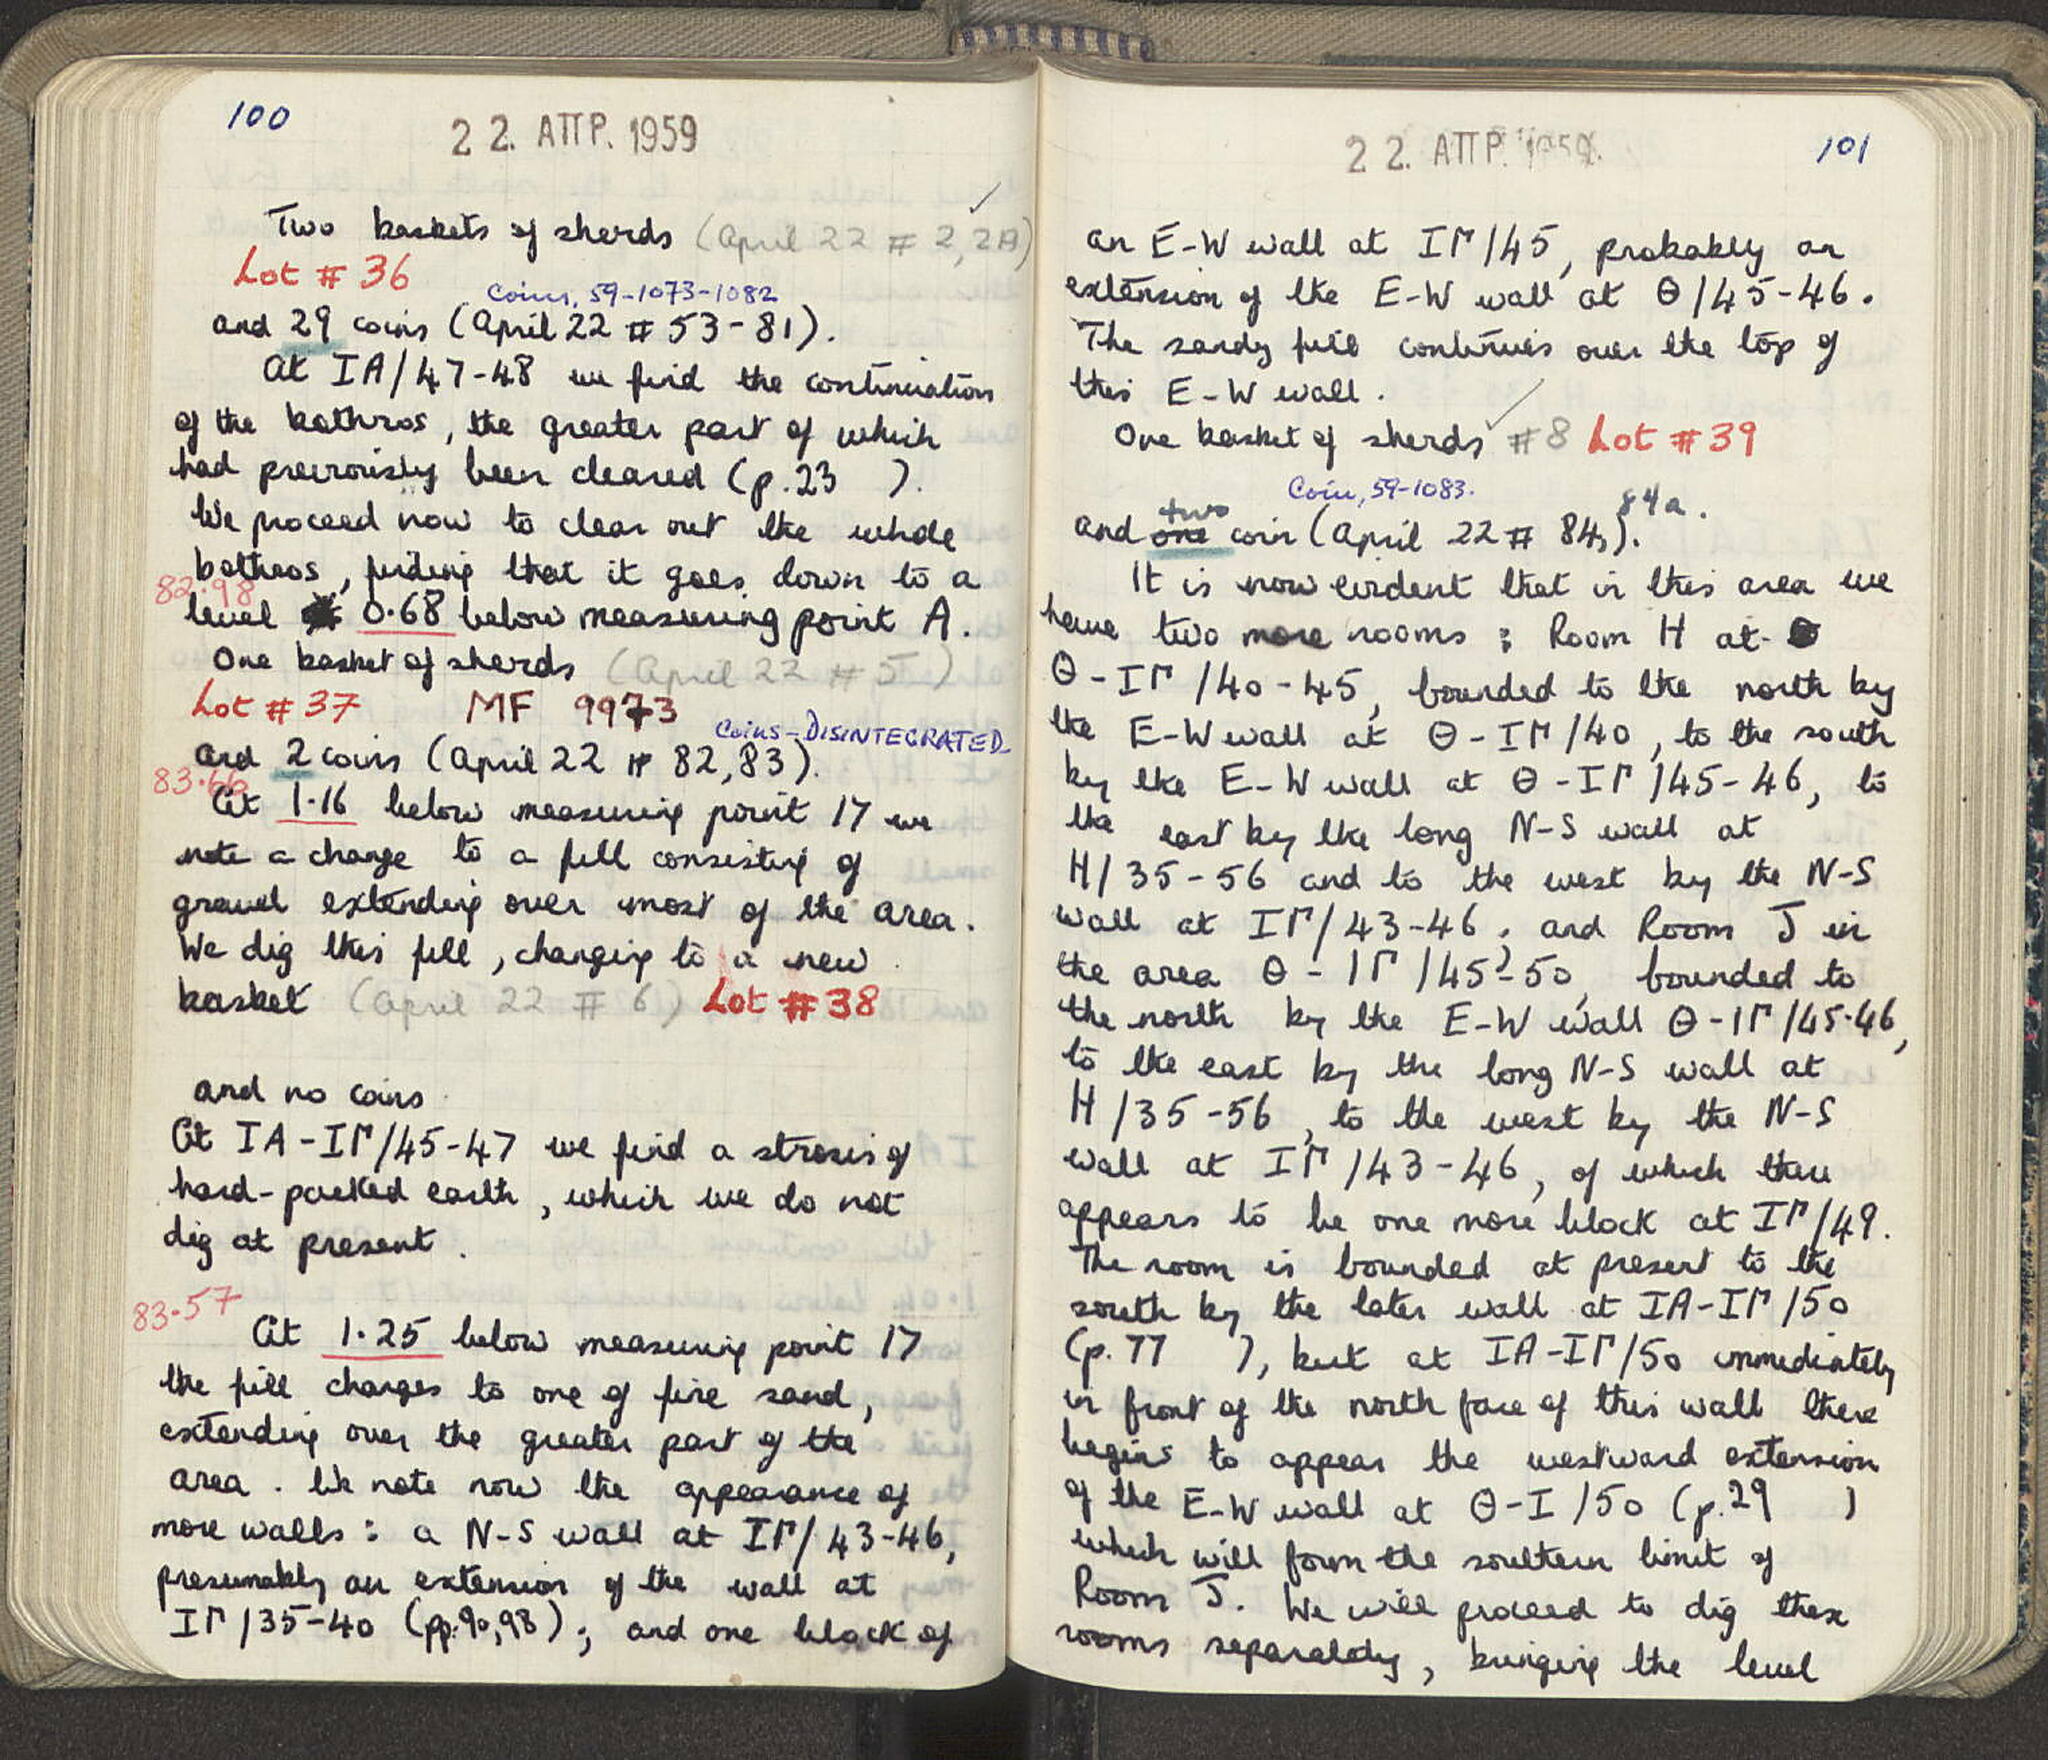 100
22. ΑΠΡ. 1959
Two baskets of sherds (April 22 # 2, 2A)
Lot # 36
Coins, 59-1073-1082
and 29 coins (April 22 # 53-81).
At ΙΑ/47-48 we find the continuation
of the bothros, the greater part of which
had previously been cleared (p. 23 ).
We proceed now to clear out the whole
bothros, finding that it goes down to a
82.98
level 0.68 below measuring point A.
One basket of sherds (April 22 # 5)
Lot # 37 MF 9973
Coins - DISINTEGRATED
and 2 coins (April 22 # 82, 83).
83.66
At 1.16 below measuring point 17 we
note a change to a fill consisting of
gravel extending over most of the area.
We dig this fill, changing to a new
basket (April 22 # 6) Lot # 38
and no coins
At ΙΑ-ΙΓ/45-47 we find a strosis of
hard-packed earth, which we do not
dig at present.
83.57
At 1.25 below measuring point 17
the fill changes to one of fine sand,
extending over the greater part of the
area. We note now the appearance of
more walls: a N-S wall at ΙΓ/43-46,
presumably an extension of the wall at
ΙΓ/35-40 (pp. 90, 98); and one block of
22. ΑΠΡ. 1959.
101
an E-W wall at ΙΓ/45, probably an
extension of the E-W wall at Θ/45-46.
The sandy fill continues over the top of
this E-W wall.
One basket of sherds #8 Lot #39
Coin, 59-1083.
two 84a.
and one coin (April 22 # 84,).
It is now evident that in this area we
have two more rooms: Room H at
Θ-ΙΓ/40-45, bounded to the north by
the E-W wall at Θ-ΙΓ/40, to the south
by the E-W wall at Θ-ΙΓ/45-46, to
the east by the long N-S wall at
H/35-56 and to the west by the N-S
wall at ΙΓ/43-46; and Room J in
the area Θ-ΙΓ/45-50, bounded to
the north by the E-W wall Θ-ΙΓ/45-46,
to the east by the long N-S wall at
H/35-56, to the west by the N-S
wall at ΙΓ/43-46, of which there
appears to be one more block at ΙΓ/49.
The room is bounded at present to the
south by the later wall at ΙΑ-ΙΓ/50
(p. 77 ), but at ΙΑ-ΙΓ/50 immediately
in front of the north face of this wall there
begins to appear the westward extension
of the E-W wall at Θ-Ι/50 (p. 29 )
which will form the southern limit of
Room J. We will proceed to dig these
rooms separately, bringing the level